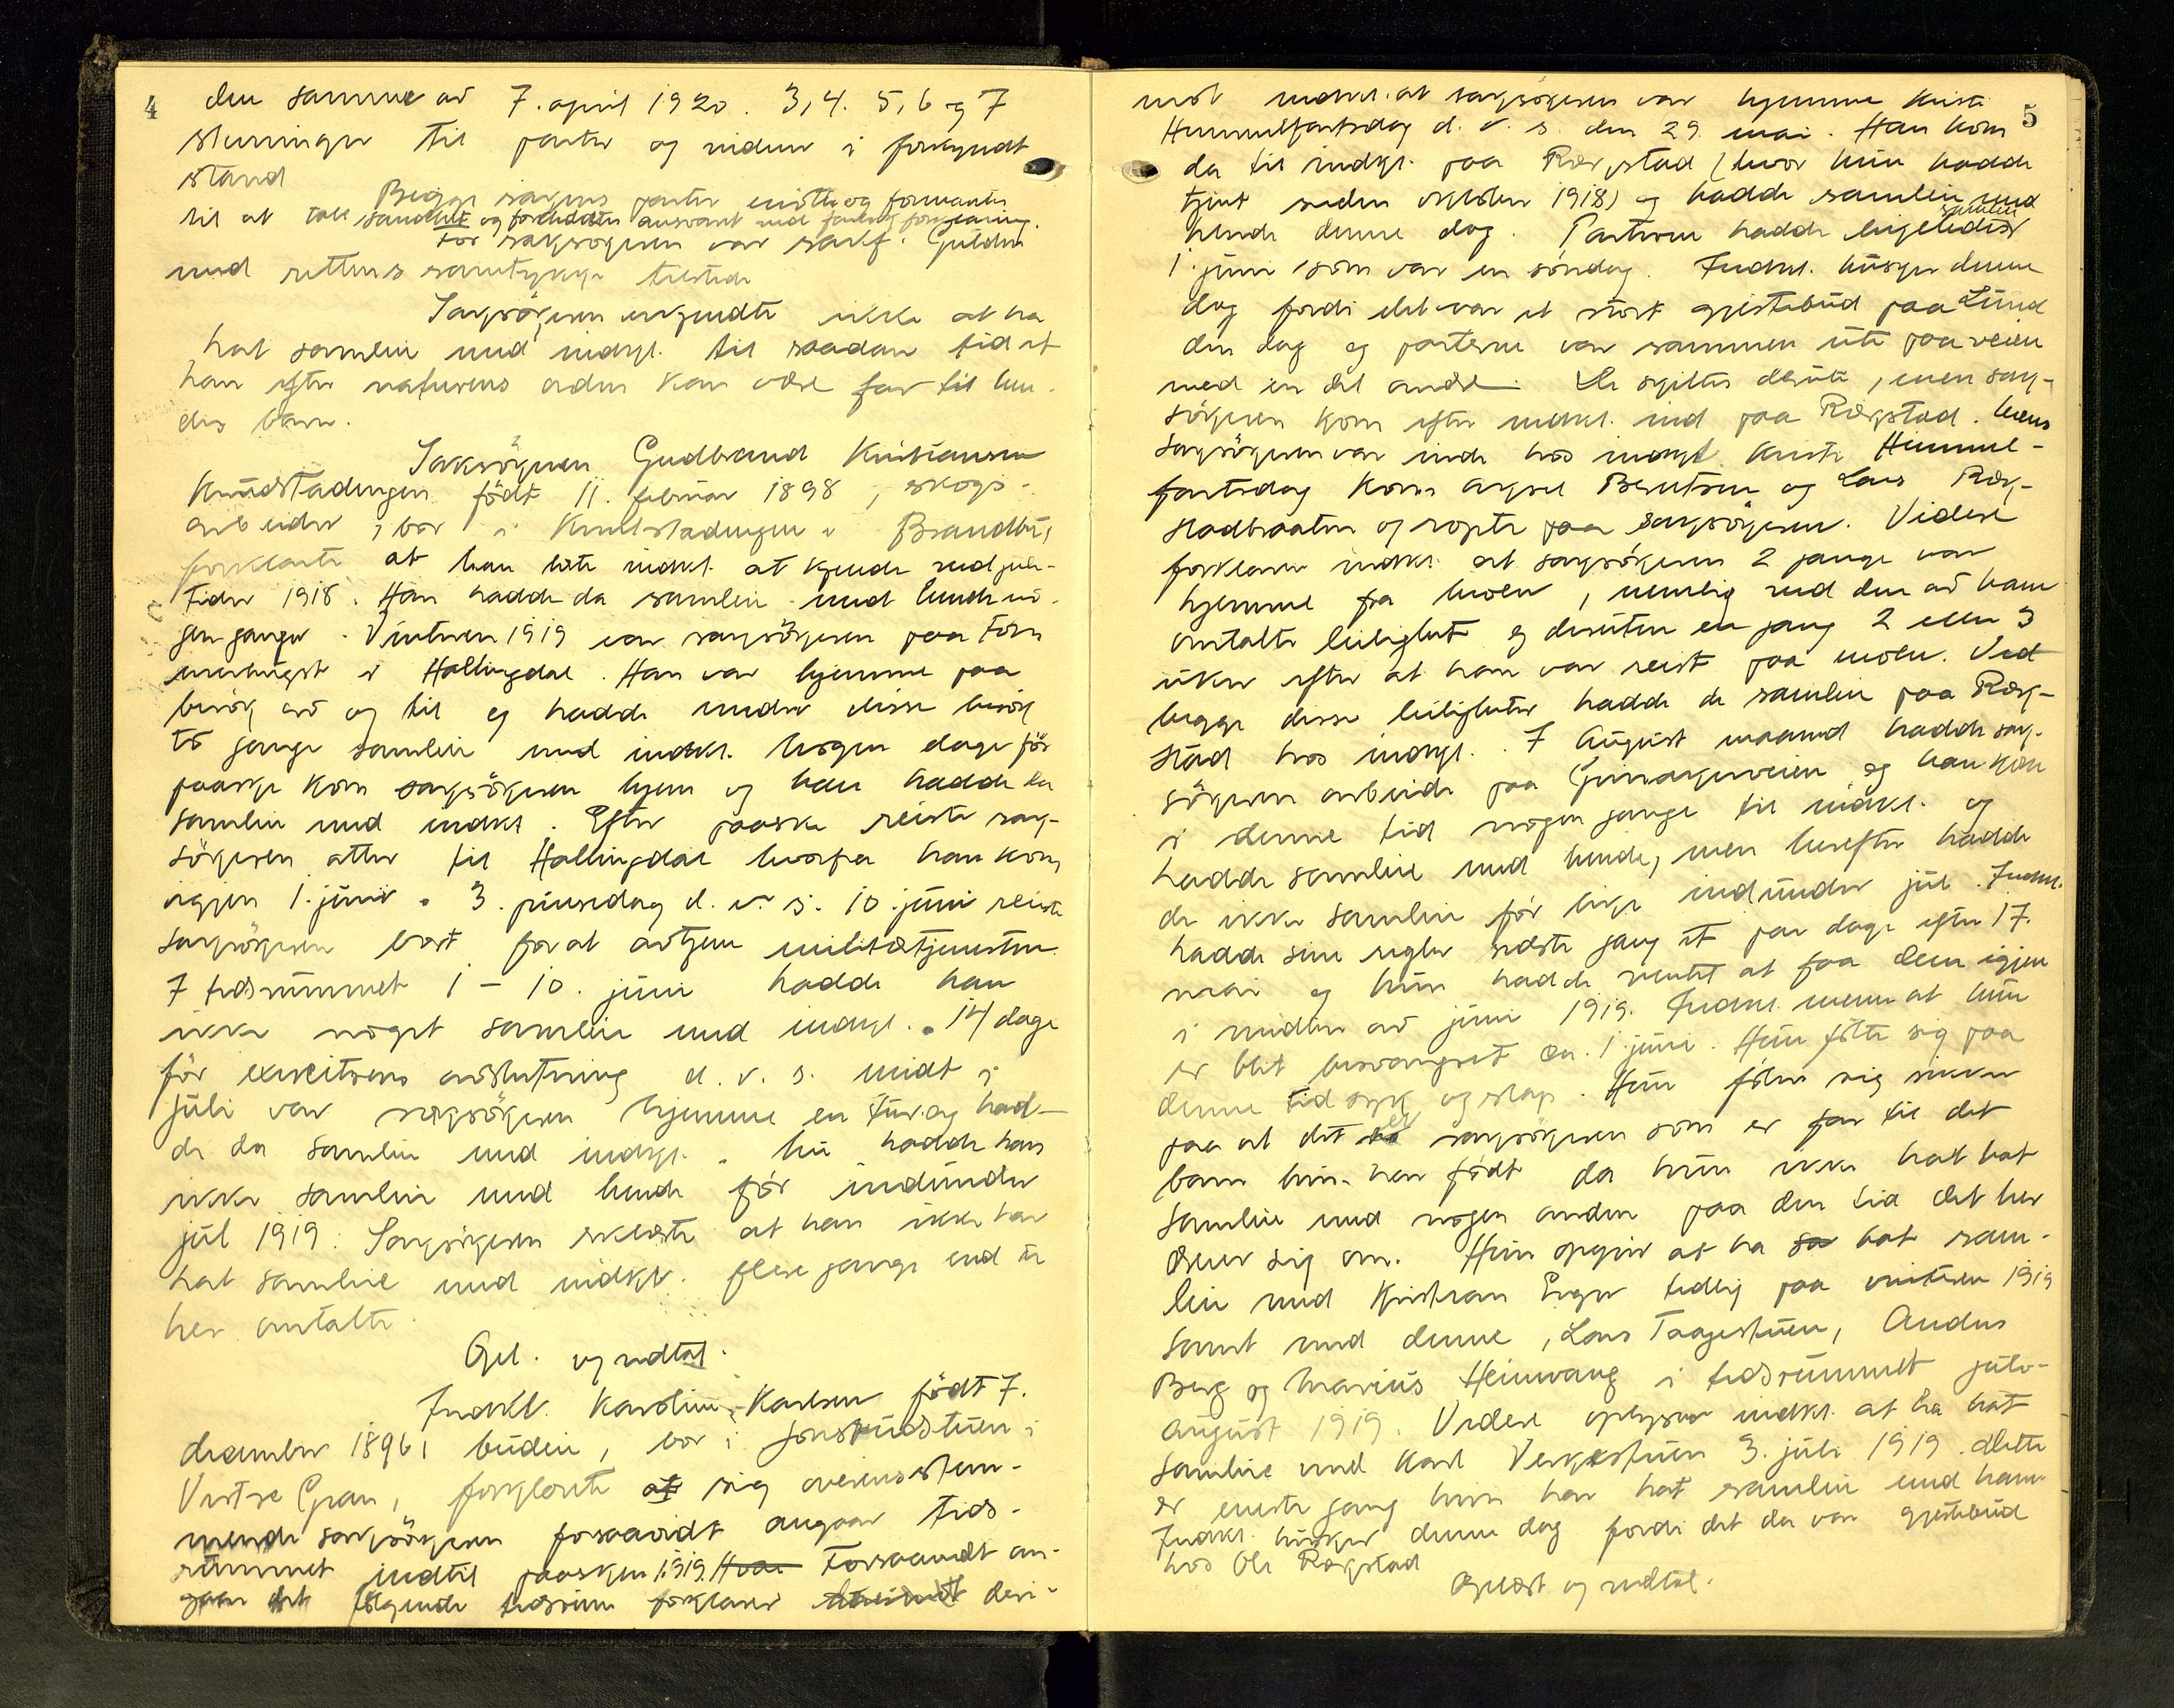 4
den samme av 7. april 1920. 3, 4. 5, 6 og 7
stevninger til parter og vidner i forkyndt
stand
Begge sakens parter møtte og formantes
til at tale sandhet og foreholdtes ansvaret ved falsk forklaring.
For saksøgeren var sakf. Gulden
med rettens samtykke tilstede
Saksøgeren erkjendte ikke at ha
hat samleie med indkl. til saadan tid at
han efter naturens orden kan være far til hen-
des barn.
Saksøgeren Gudbrand Kristiansen
Knudstadengen født 11. februar 1898, skogs-
arbeider, bor i Knudstadengen i Brandbu,
forklarte at han lærte indkl. at kjende ved jule-
tider 1918. Han hadde da samleie med hende no-
gen ganger. Vinteren 1919 var saksøgeren paa tøm-
merhugst i Hallingdal. Han var hjemme paa
besøk av og til og hadde under disse besøk
to gange samleie med indkl. Nogen dage før
paaske kom saksøgeren hjem og han hadde da
samleie med indkl. Efter paaske reiste sak-
søgeren atter til Hallingdal hvorfra han kom
igjen 1. juni. 3. pinsedag d. v. s. 10. juni reiste
saksøgeren bort for at avtjene militærtjenesten.
I tidsrummet 1 - 10. juni hadde han
ikke noget samleie med indkl. 14 dage
før exercitsens avslutning d. v. s. midt i
juli var saksøgeren hjemme en tur og had-
de da samleie med indkl. Nu hadde han
ikke samleie med hende før indunder
jul 1919. Saksøgeren erklærte at han ikke har
hat samleie med indkl. flere gange end de
her omtalte.
Opl. og vedtat.
Indkl. Karoline Karlsen født 7.
december 1896, budeie, bor i Jonsrudstuen i
Vestre Gran, forklarte at sig overensstem-
mende saksøgeren forsaavidt angaar tids-
rummet indtil paasken 1919. Forsaavidt an-
gaar det følgende tidsrum forklarer deri-
5
mot indkl. at saksøgeren var hjemme Kristi
Himmelfartsdag d. v. s. den 29. mai. Han kom
da til indkl. paa Rækstad (hvor hun hadde
tjent siden oktober 1918) og hadde samleie med
hende denne dag. Parterne hadde likeledes samleie
1. juni som var en søndag. Indkl. husker denne
dag fordi det var et stort gjestebud paa Lund
den dag og parterne var sammen ute paa veien
med en del andre. De skiltes derute, men sak-
søgeren kom efter indkl. ind paa Rækstad. Mens
saksøgeren var inde hos indkl. Kristi Himmel-
fartsdag kom Aksel Berntsen og Lars Ræk-
stadbraaten og ropte paa saksøgeren. Videre
forklarer indkl. at saksøgeren 2 gange var
hjemme fra moen, nemlig ved den av ham
omtalte leilighet og desuten en gang 2 eller 3
uker efter at han var reist paa moen. Ved
begge disse leiligheter hadde de samleie paa Ræk-
stad hos indkl. I August maaned hadde sak-
søgeren arbeide paa veien og han kom
i denne tid nogen gange til indkl. og
hadde samleie med hende, men herefter hadde
de ikke samleie før like indunder jul. Indkl.
hadde sine regler sidste gang et par dage efter 17.
mai og hun hadde ventet at faa dem igjen
i midten av juni 1919. Indkl. mener at hun
er blit besvangret ca. 1 juni. Hun følte sig paa
denne tid syk og slap. Hun føler sig sikker
paa at det er saksøgeren som er far til det
barn hun har født da hun ikke hat hat
samleie med nogen anden paa den tid det her
dreier sig om. Hun opgir at ha so hat sam-
leie med Kristian Enger tidlig paa vinteren 1919
samt med denne, Lars Taagestuen, Anders
Berg og Marius Heimvang i tidsrummet julo-
august 1919. Videre oplyser indkl. at ha hat
samleie med Karl Verkestuen 3. juli 1919. Dette
er eneste gang hun har hat samleie med ham
Indkl. husker denne dag fordi det da var gjestebud
hos Ole Rækstad
Oplæst og vedtat.